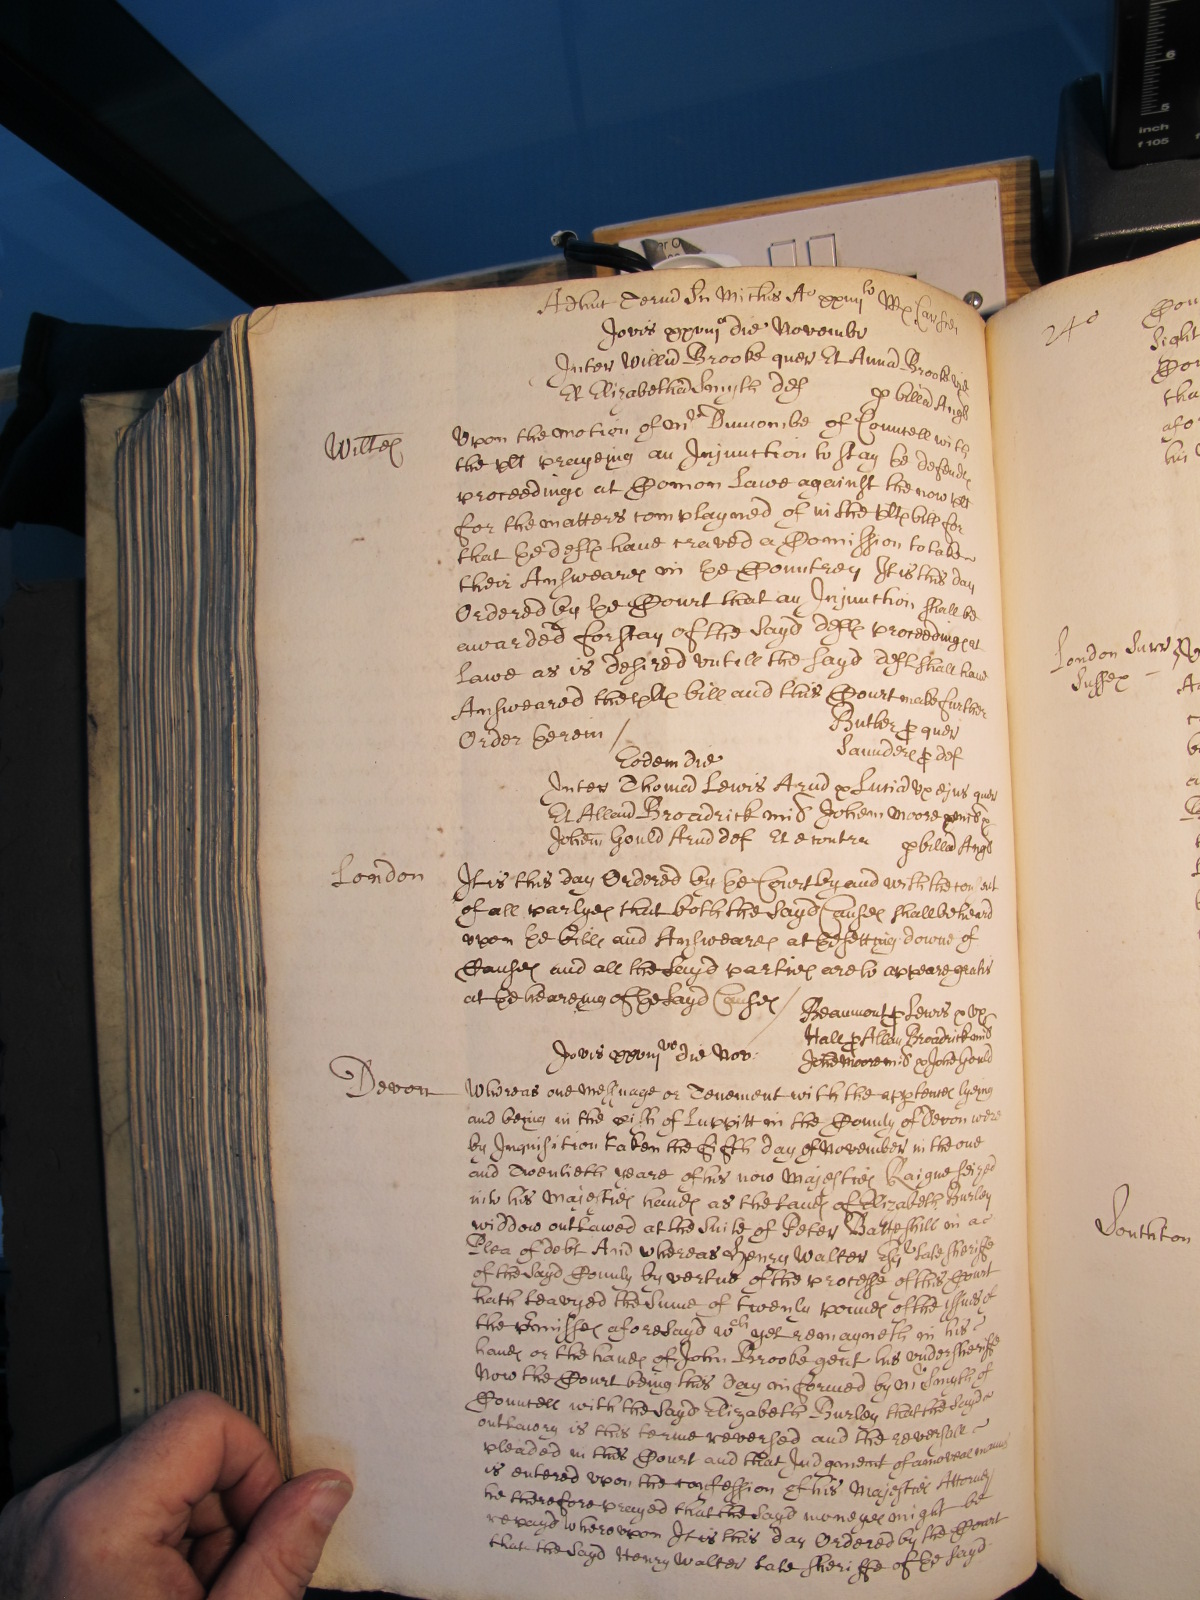 Adhuc Termd Sti Michis Ao xxiiijto Rx Car scdi
Jovis xxviijo die Novembr
Inter Willm Brooke quer Et Annad Brooke vid
Et Elizabethad Smyth def p billad Angl
Wiltes
Upon the motion of Mr Duncombe of Councell with
the plt prayeing an Injunction to stay ye defendts
proceedings at Comon Lawe against the now plt
for the matters complayned of in the plts bill for
that ye defts have craved a Comission to take
their Answeares in ye Countrey It is this day
Ordered by ye Court that an Injunction shall be
awarded for stay of the sayd defts proceedings at
Lawe as is desired untill the sayd deft shall have
Answeared the plts bill and this Court make further
Order herein /
Butler p quer
Saunders p def
Eodem die
Inter Thomad Lewis Armd & Luciad ux ejus quer
Et Alland Brodrick mid Johem Moore mid &
Johem Gould Armd def Et e contra p billad Angl
London
It is this day Ordered by ye Court by and with the consent
of all partyes that both the sayd Causes shall be heard
upon ye bills and Answeares at ye setting downe of
Causes and all the sayd parties are to appeare gratis
at ye heareing of ye sayd Causes /
Beaumont p Lewis & ux
Hall p Allan Broadrick mid
John Moore mid & John Gould
Jovis xxviijvo die Nov:
Devon
Whereas one messuage or Tenement with the apptences lyeing
and being in the pish of Luppitt in the County of Devon were
by Inquisition taken the fifth day of November in the one
and Twentieth yeare of his now Majesties Raigne seized
into his Majesties hands as the lands of Elizabeth Burley
widdow outlawed at the suite of Peter Batteshill in a
Plea of debt And whereas Henry Walter Esqr late sheriffe
of the sayd County by vertue of the processe of this Court
hath leavyed the sume of twenty pounds of the issues of
the pmisses aforesayd wch yet remayneth in his
hands or the hands of John Brooke gent his undersheriffe
Now the Court being this day informed by Mr Smyth of
Councell with the sayd Elizabeth Burley that the sayd
outlawry is this terme reversed and the reversall
pleaded in this Court and that Judgment of amoveas manus
is entered upon the confession of his Majesties Attorney
he therefore prayed that the sayd moneyes might be
repayd whereupon It is this day Ordered by the Court
that the sayd Henry Walter late sheriffe of ye sayd
240
London Surr
Sussex
Southton
inch
f 105
6
5